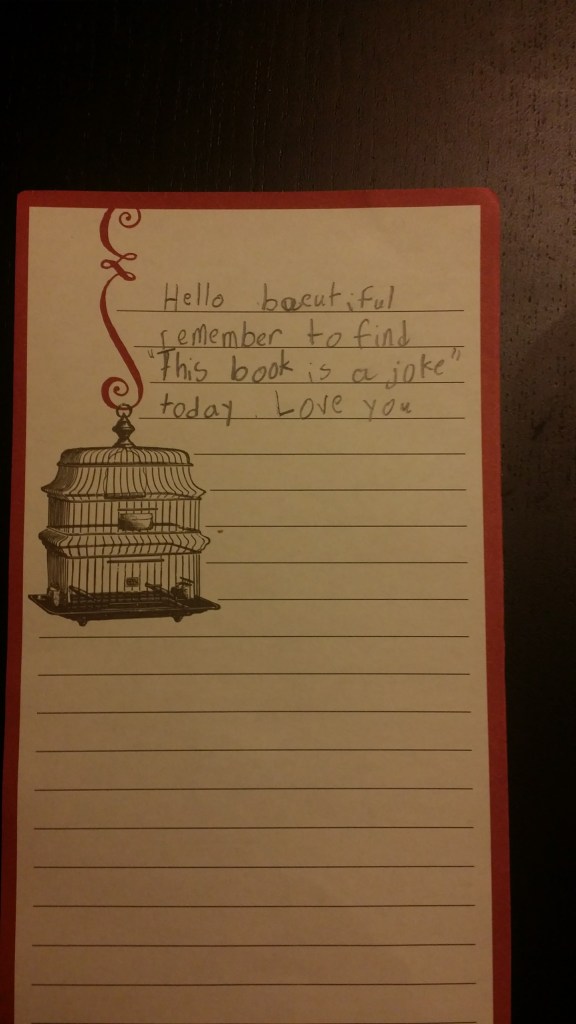 Hello bacutiful
remember to find
"This book is a joke"
today. Love you